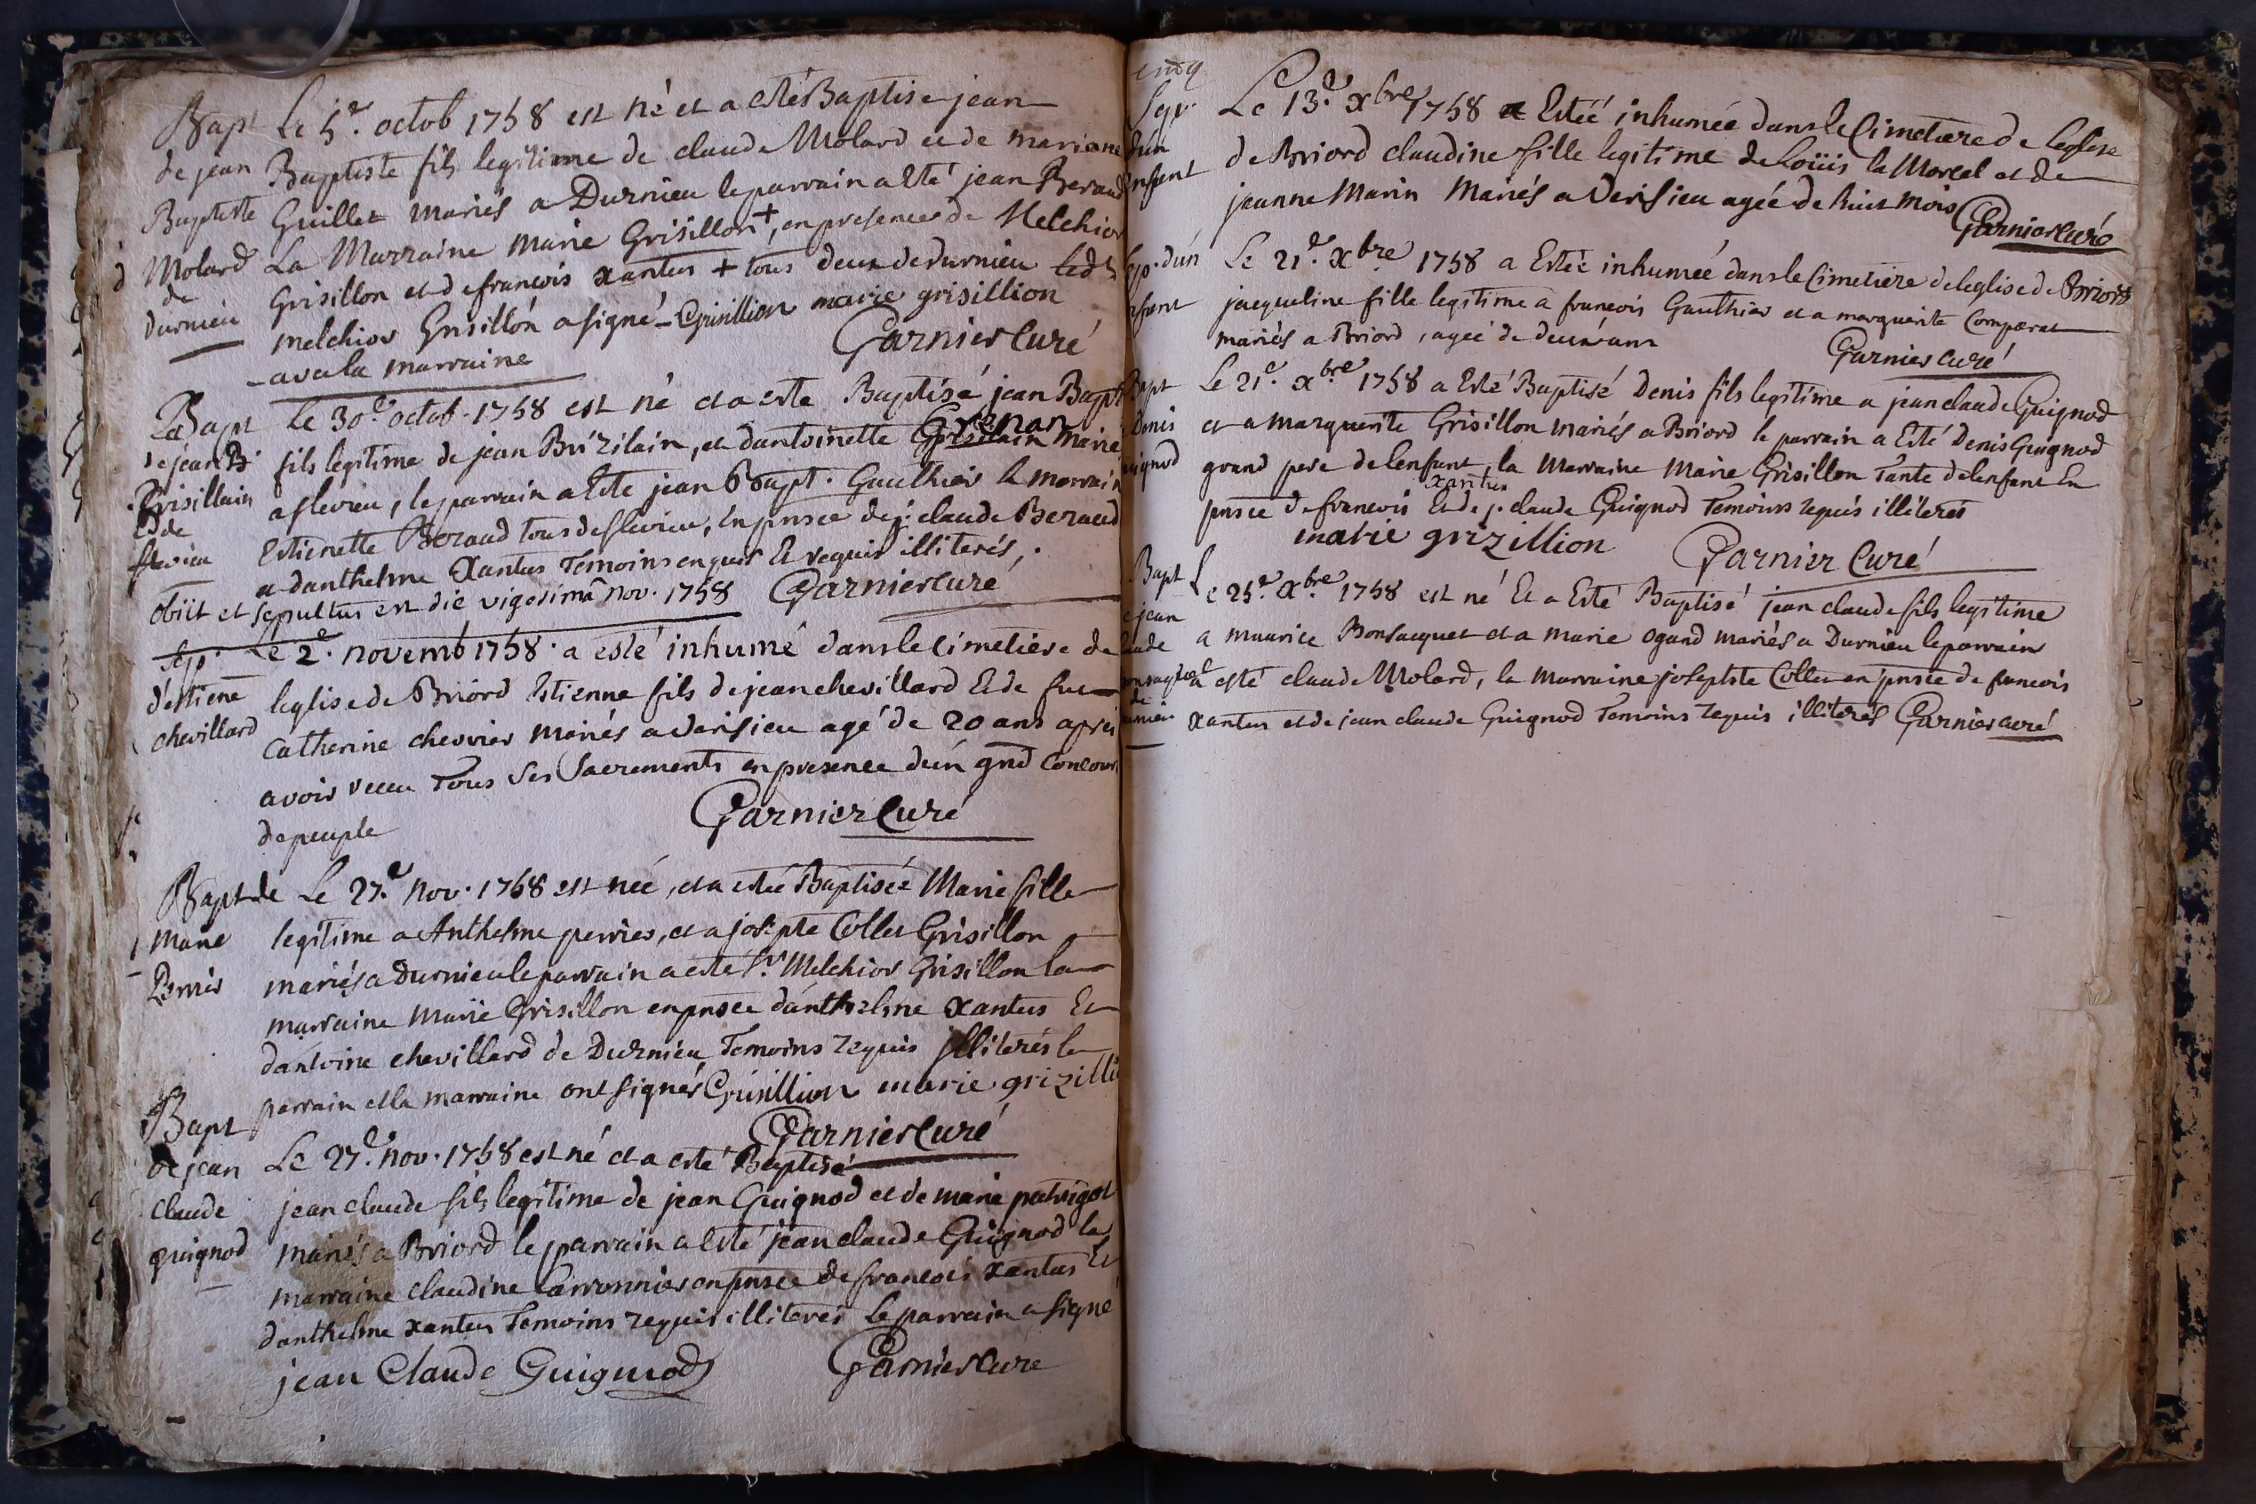 Bapt
de jean
Baptiste
Molard
de
durnieu
Le 5.e octob 1758 est né et a esté Baptise jean
Baptiste fils legitime de claude Molard et de mariane
Guillet mariés a Durnieu le parrain a esté jean Beraud
La Marraine Marie Grisillon +, en presence de Melchior
Grisillon et de francois xantus + tous deux de durnieu led
melchior Grisillon a signé - Grisillion marie grisillion
- avec la marraine
Garnier Curé
Bapt
de jean B.
Brisillain
de
flevieu
Le 30.e octob. 1758 est né et a esté Baptisé jean Bapt
fils legitime de jean Brizilain, et dantoinette Grenan Marié
a flevieu, le parrain a esté jean Bapt. Gauthier la marrain
Estienette Beraud tous de flevieu, En pnsce de j. claude Beraud
et danthelme Xantus Temoins enquis Et requis illiterés.
obiit et sepultus est die vigesimâ nov. 1758 Garnier curé
Sep.
d'estiene
chevillard
Le 2.e novemb 1758. a esté inhumé dans le Cimetiere de
leglise de Briord Estienne fils de jean chevillard Et de fue
Catherine chevrier mariés a Verisieu agé de 20 ans aprés
avoir receu Tous ses Sacrements en presence d'ún gnd Concour
de peuple
Garnier Curé
Bapt de
Marie
Perrier
Le 27.e Nov. 1758 est née, et a esté Baptiseé Marie fille
legitime a Anthelme perrier, et a josepte Collet Grisillon
mariés a Durnieu le parrain a esté Sr. Melchior Grisillon la
marraine Marie Grisillon en pnsce dánthelme Xantus Et
dantoine chevillard de Durnieu Temoins requis illiterés le
parrain et la marraine ont signés Grisillion marie grizilli
Garnier Curé
Bapt
de jean
claude
guignod
Le 27.e Nov. 1758 est né et a esté Baptisé
jean claude fils legitime de jean Guignod et de marie patrigot
mariés a Briord le parrain a Esté jean claude Guignod la
marraine claudine Carronnier en pnsce de francois xantus Et
danthelme xantus Temoins requis illiterés Le parrain a signé
jean Claude Guignod Garnier Curé
cinq
Sep.
d'un
enfant
Le 13.e Xbre 1758 a Estéé inhumée dans le Cimetiere de leglise
de Briord claudine fille legitime de Loüis la Morcel et de
jeanne Marin Mariés a Verisieu agée de huit mois
Garnier Curé
Sep. d'ún
enfant
Le 21.e Xbre 1758 a Estéé inhumeé dans le Cimetiere de leglise de Briord
jacqueline fille legitime a francois Gauthier et a marguerite Comparat
mariés a Briord, agée de deux ans
Garnier curé
Bapt
Denis
Guignod
Le 21.e xbre 1758 a Esté Baptisé Denis fils legitime a jean claude Guignod
et a Marguerite Grisillon mariés a Briord le parrain a Esté Denis Guignod
grand pere de lenfant, la Marraine Marie Grisillon Tante de lenfant En
pnsce de francois xantus Et de j. claude Guignod Temoins requis illiterés
marie grizillion
Garnier Curé
Bapt
de jean
claude
de
durnieu
Le 25.e Xbre 1758 est né Et a Esté Baptisé jean claude fils legitime
a maurice Bonsacquet et a marie ogand mariés a Durnieu le parrain
a esté claude Molard, la marraine josephte Collet en pnsce de francois
xantus et de jean claude Guignod Temoins requis illiterés Garnier curé